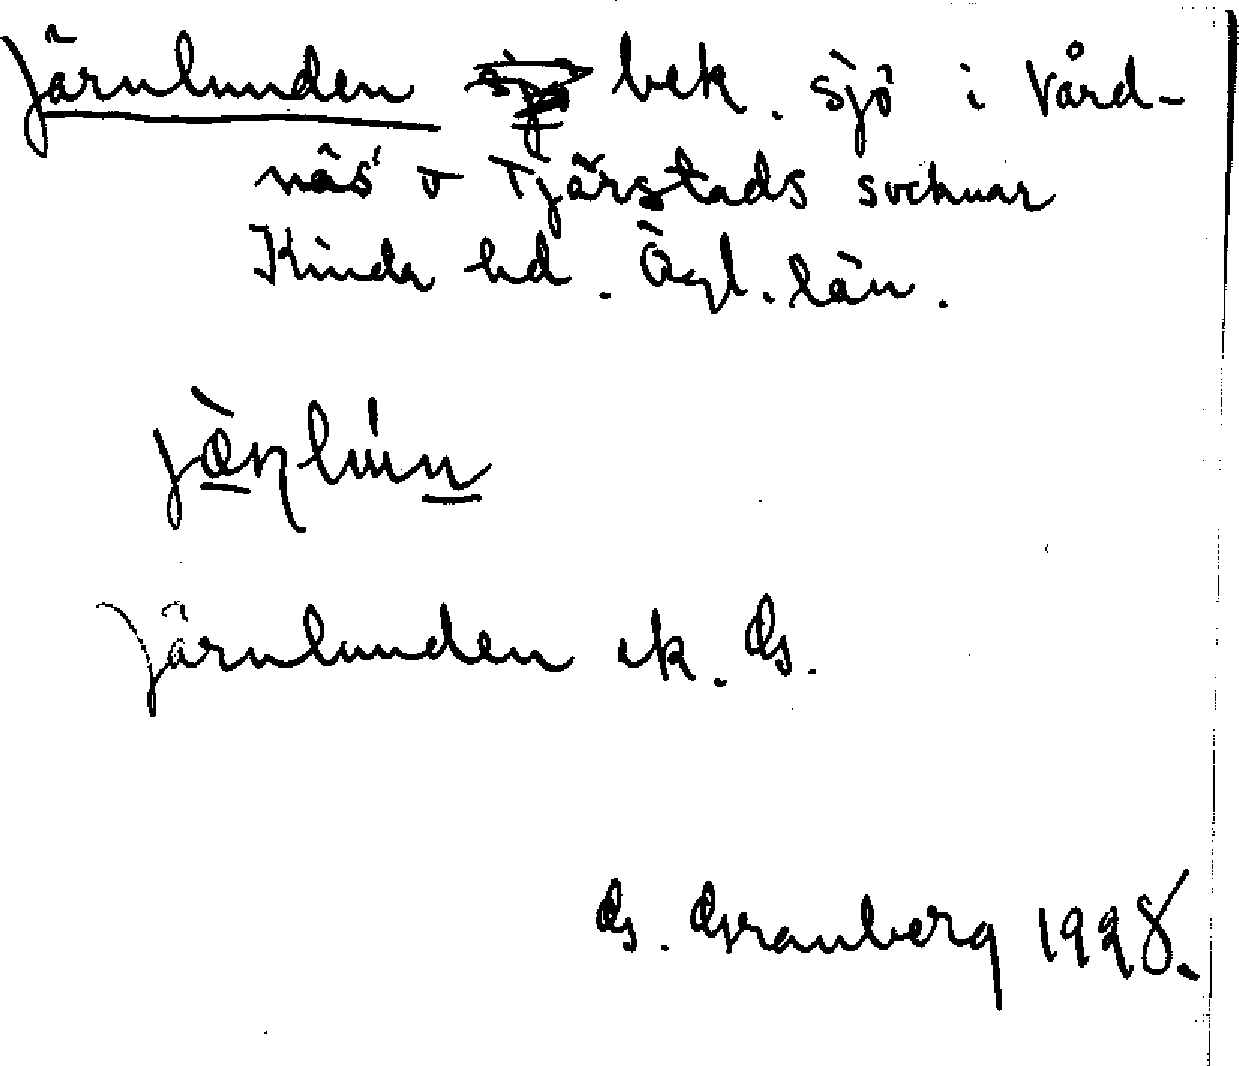 Järnlunden bek. sjö i Vård-
näs o Tjärstads socknar
Kinda hd. Ögl. län.
Järnlunden ek. G.
G. Granberg 1928.